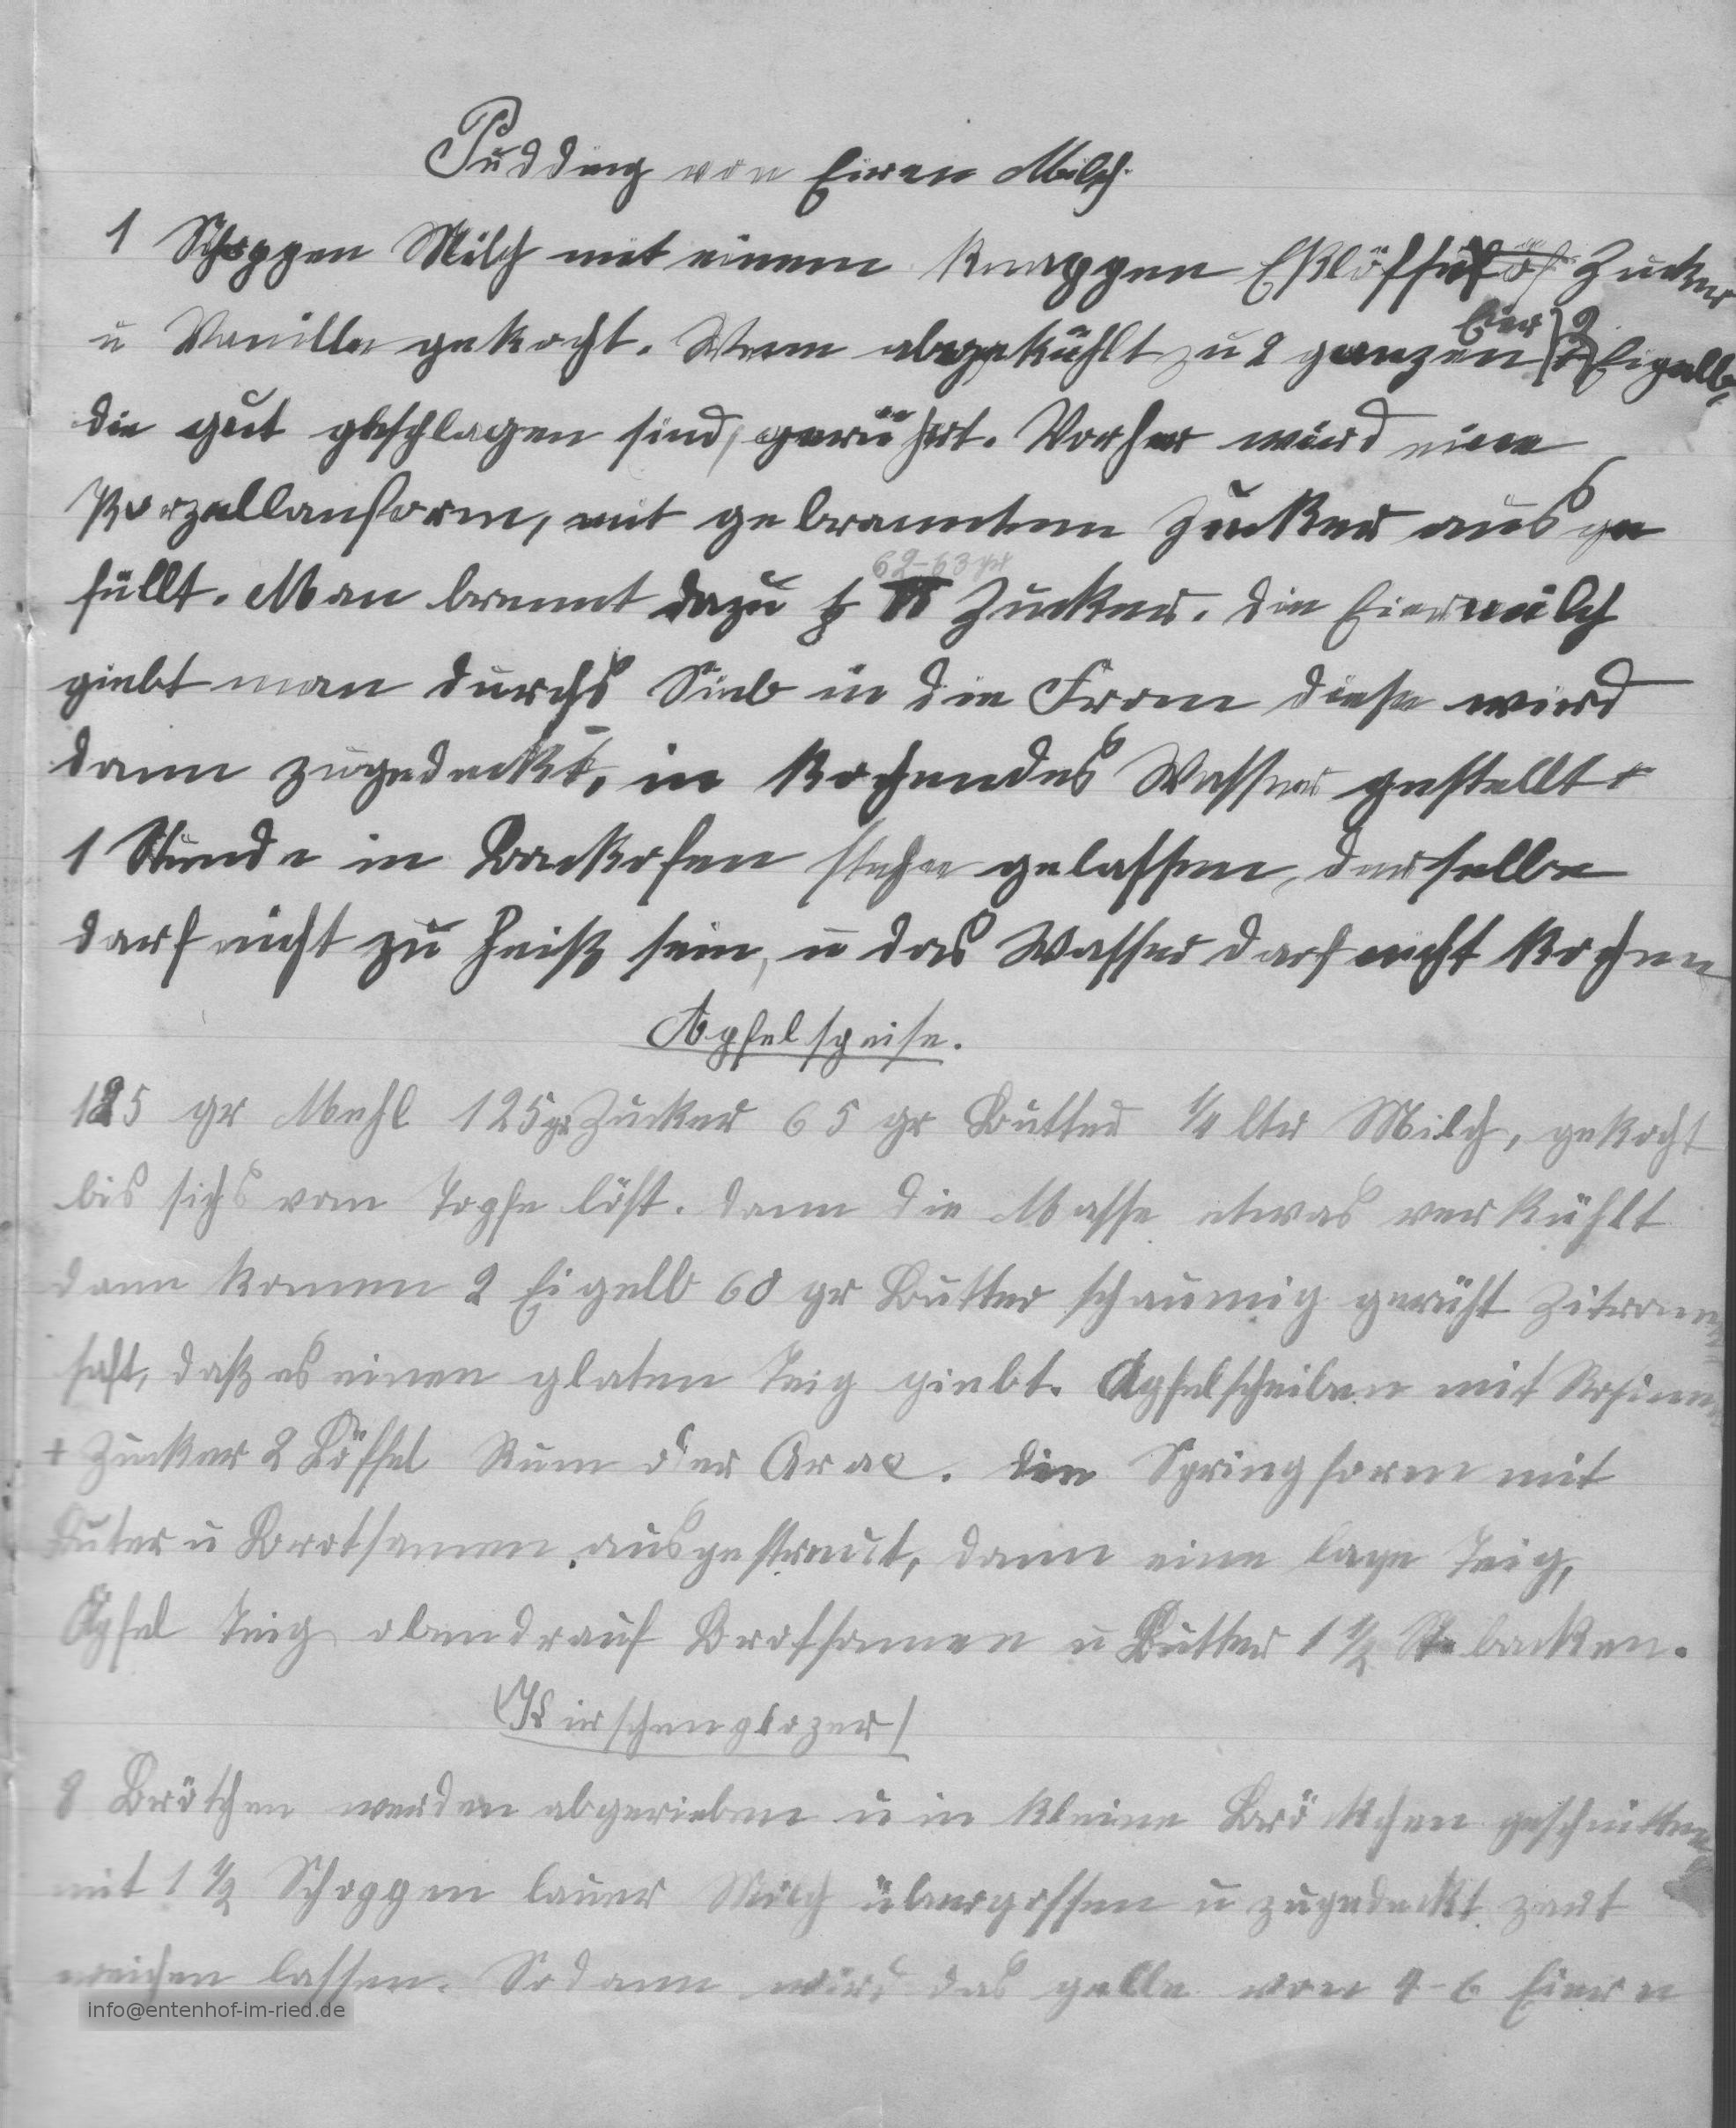 Pudding von Eiren Milch.
1 Schoppen Milch mit einem knappen Eßlöffel Zucker
u Vanille gekocht. Wenn abgekühlt zu 2 ganzen Eier 2 Eigelb,
die gut geschlagen sind, gerührt. Vorher wird eine
Porzellanform, mit gebranntem Zucker ausge
füllt. Man brennt dazu 62-63 gr Zucker. die Eiermilch
giebt man durchs Sieb in die From diese wird
dann zugedeckt, in kochendes Wasser gestellt +
1 Stunde in Backofen stehe gelassen, derselbe
darf nicht zu heiß sein, u das Wasser darf nicht kochen
Apfelspeise.
125 gr Mehl 125 gr Zucker 65 gr Butter 1/4 ltr Milch, gekocht
bis sichs vom Topfe löst. dann die Masse etwas verkühlt
dann kommen 2 Eigelb 60 gr Butter schaumig gerüht Zitronen
saft, daß es einen glaten Teig giebt. Apfelscheiben mit Rosinen
+ Zucker 2 Löffel Rum oder Arac. die Springform mit
Buter u Brotsamen ausgestreut, dann eine lage Teig,
Äpfel Teig obendrauf Brotsamen u Butter 1 1/2 St backen.
(Kirschenplozer)
8 Brötchen werden abgerieben u in kleine Bröckchen geschnitten
mit 1 1/2 Schoppen lauer Milch übergossen u zugedeckt
weichen lassen. Sodann wird das gelbe von 4-6 Eiern
info@entenhof-im-ried.de